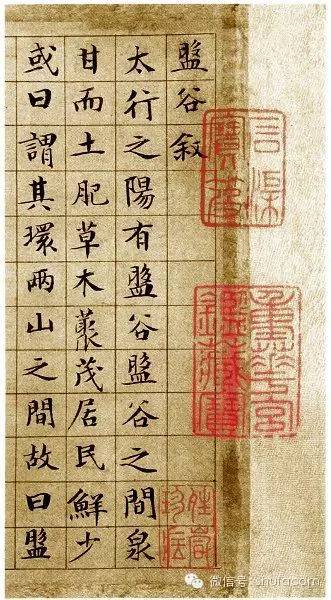 盤谷叙
太行之陽有盤谷盤谷之間泉
甘而土肥草木藂茂居民鮮少
或曰謂其環兩山之間故曰盤
微信号: shufacom